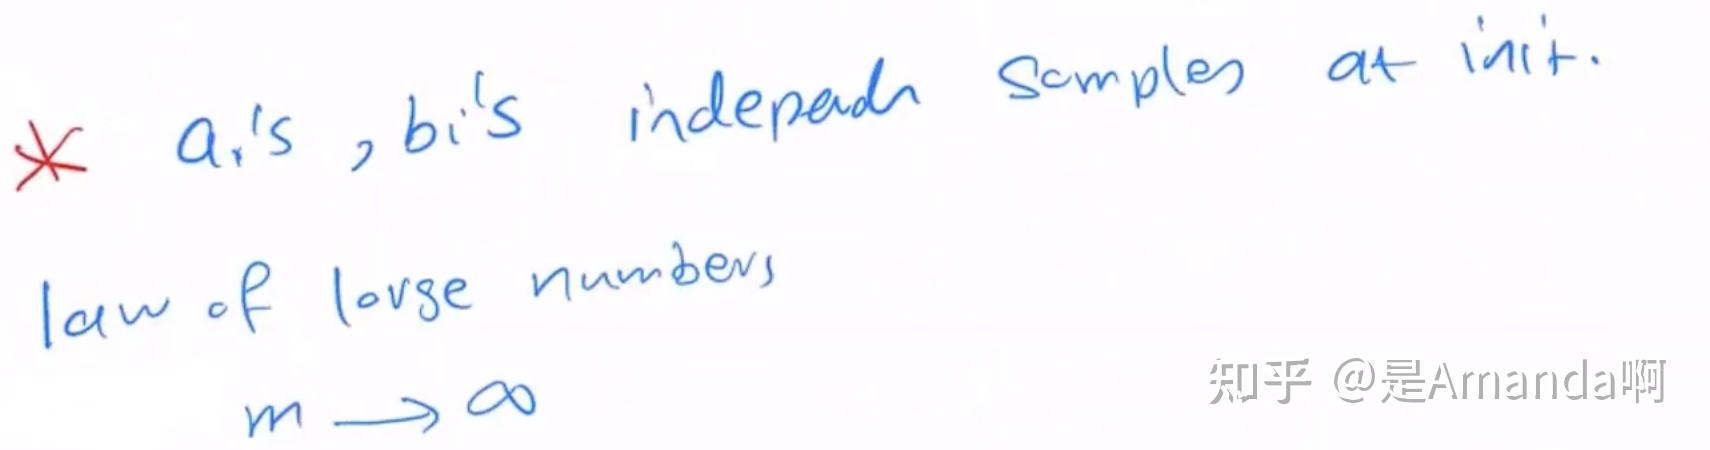 * ai's , bi's independ samples at init.
law of large numbers
m → ∞
知乎 @是Amanda啊